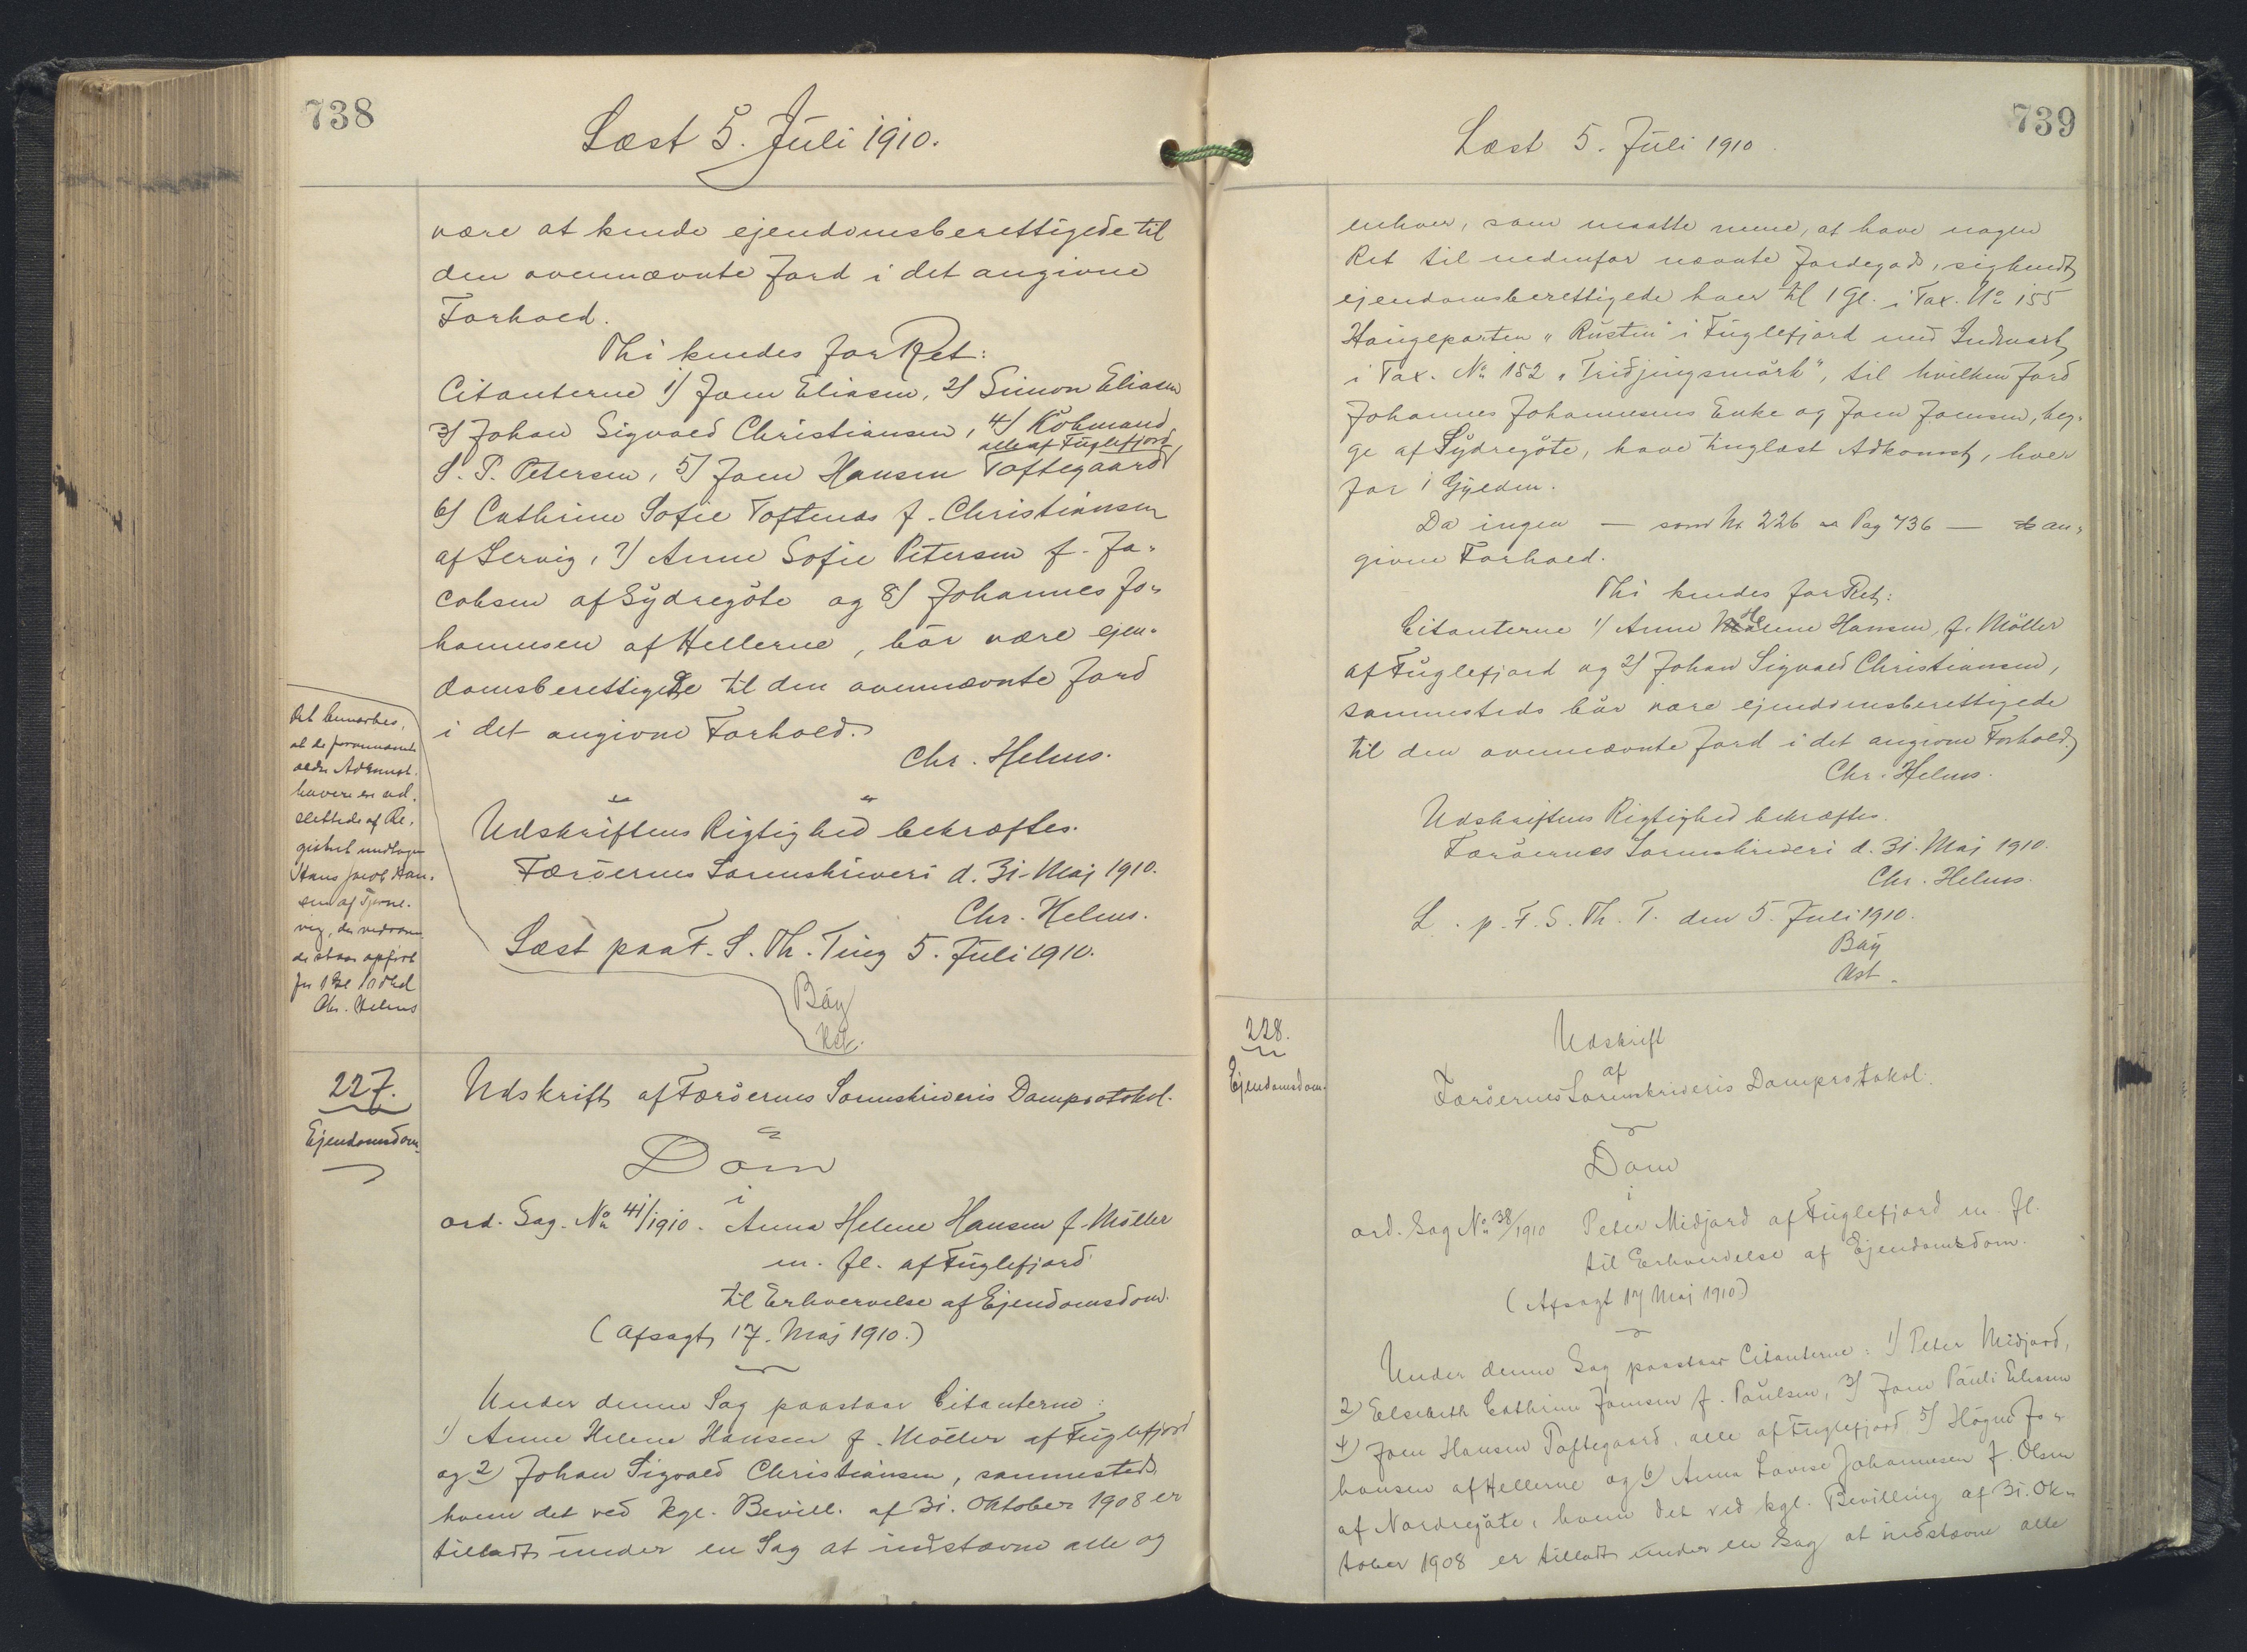 738
Læst 5. Juli 1910.
være at kende ejendomsberettigede til
den ovennævnte Jord i det angivne
Forhold.
Thi kendes for Ret:
Citanterne 1) Joen Eliasen, 2) Simon Eliasen
3) Johan Sigvald Christiansen, 4) Köbmand
alle af Fuglefjord
S. P. Petersen, 5) Joen Hansen Toftegaard,
6) Cathrine Sofie Toftenæs f. Christiansen
af Lervig, 7) Anne Sofie Petersen f. Ja-
cobsen af Sydregöte og 8) Johannes Jo-
hannesen af Hellerne, bör være ejen-
domsberettigede til den ovennævnte Jord
i det angivne Forhold.
Chr. Helms.
Udskriftens Rigtighed bekræftes.
Færöernes Sorenskriveri d. 31. Maj 1910.
Chr. Helms.
Læst paa F. S. Th. Ting 5. Juli 1910.
Báy
Kst.
Det bemærkes,
at de forannævnte
ældre Adkomst-
havere er ud-
slettede af Re-
gistret undtagen
Hans Jacob Han-
sen af Tjörne-
vig, der vedvaren-
de staar opfört
for 1 Gl
Chr. Helms
227.
Ejendomsdom
Udskrift af Færöernes Sorenskriveris Domprotokol.
Dom
i
ord. Sag. No 41/1910. Anna Helene Hansen f. Möller
m. fl. af Fuglefjord
til Erhvervelse af Ejendomsdom.
(Afsagt 17. Maj 1910.)
Under denne Sag paastaar Citanterne:
1) Anne Helene Hansen f. Möller af Fuglefjord
og 2) Johan Sigvald Christiansen, sammesteds
hvem det ved kgl. Bevill. af 31. Oktober 1908 er
tilladt under en Sag at indstævne alle og
739
Læst 5. Juli 1910.
enhver, som maatte mene, at have nogen
Ret til nedenfor nævnte Jordegods, sig kendt
ejendomsberettigede hver til 1 Gl. i Tax. No 155
Haugeparten "Rustin" i Fuglefjord med Indmark
i Tax. No 152 "Tridjingsmörk", til hvilken Jord
Johannes Johannesens Enke og Joen Joensen, beg-
ge af Sydregöte, have tinglæst Adkomst, hver
for 1 Gylden.
Da ingen — som Nr. 226 Pag 736 — an-
givne Forhold.
Thi kendes for Ret:
Citanterne 1) Anne Helene Hansen, f. Möller
af Fuglefjord og 2) Johan Sigvald Christiansen,
sammesteds bör være ejendomsberettigede
til den ovennævnte Jord i det angivne Forhold.
Chr. Helms.
Udskriftens Rigtighed bekræftes.
Færöernes Sorenskriveri d. 31. Maj 1910.
Chr. Helms.
L. p. F. S. Th. T. den 5. Juli 1910.
Báy
Kst.
228.
Ejendomsdom.
Udskrift
af
Færöernes Sorenskriveris Domprotokol.
Dom
i
ord. Sag No 38/1910 Peter Midjord af Fuglefjord m. fl.
til Erhvervelse af Ejendomsdom.
(Afsagt 17 Maj 1910)
Under denne Sag paastaar Citanterne: 1) Peter Midjord,
2) Elsebeth Cathrine Joensen f. Poulsen, 3) Joen Pauli Eliasen
4) Joen Hansen Toftegaard, alle af Fuglefjord 5) Högne Jo-
hansen af Hellerne og 6) Anna Lovise Johannesen f. Olsen
af Nordregöte, hvem det ved kgl. Bevilling af 31. Ok-
tober 1908 er tilladt under en Sag at indstævne alle